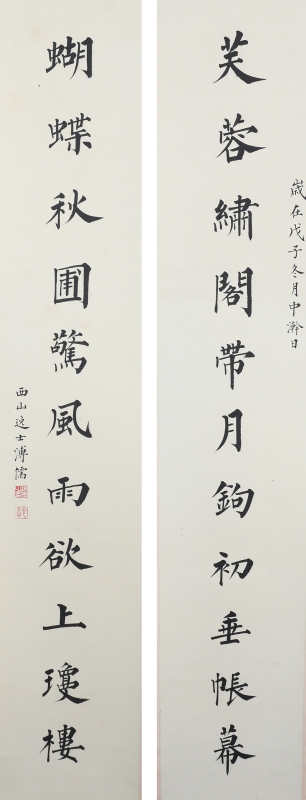 歲在戊子冬月中澣日
芙蓉繡閣帶月鉤初垂帳幕
蝴蝶秋圃驚風雨欲上瓊樓
西山逸士溥儒